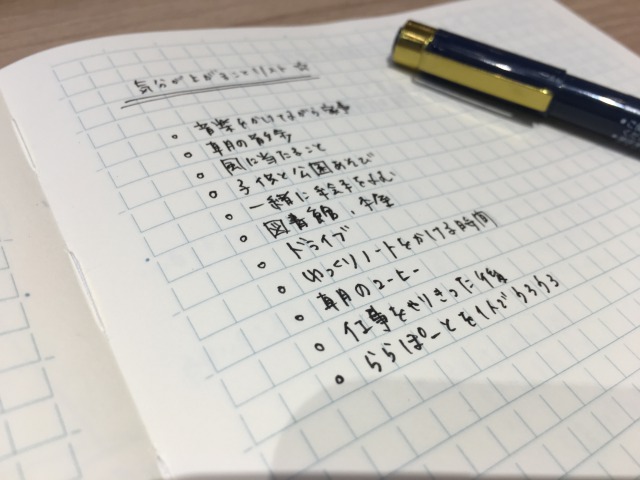 気分が上がることリスト☆
音楽をかけてながら家事
朝の散歩
風に当たること
子供と公園あそび
一緒に
図書館、本屋
ドライブ
ゆっくりノートをかける時間
朝のコーヒー
仕事をやりきった後
ららぽーとを1人でうろうろ